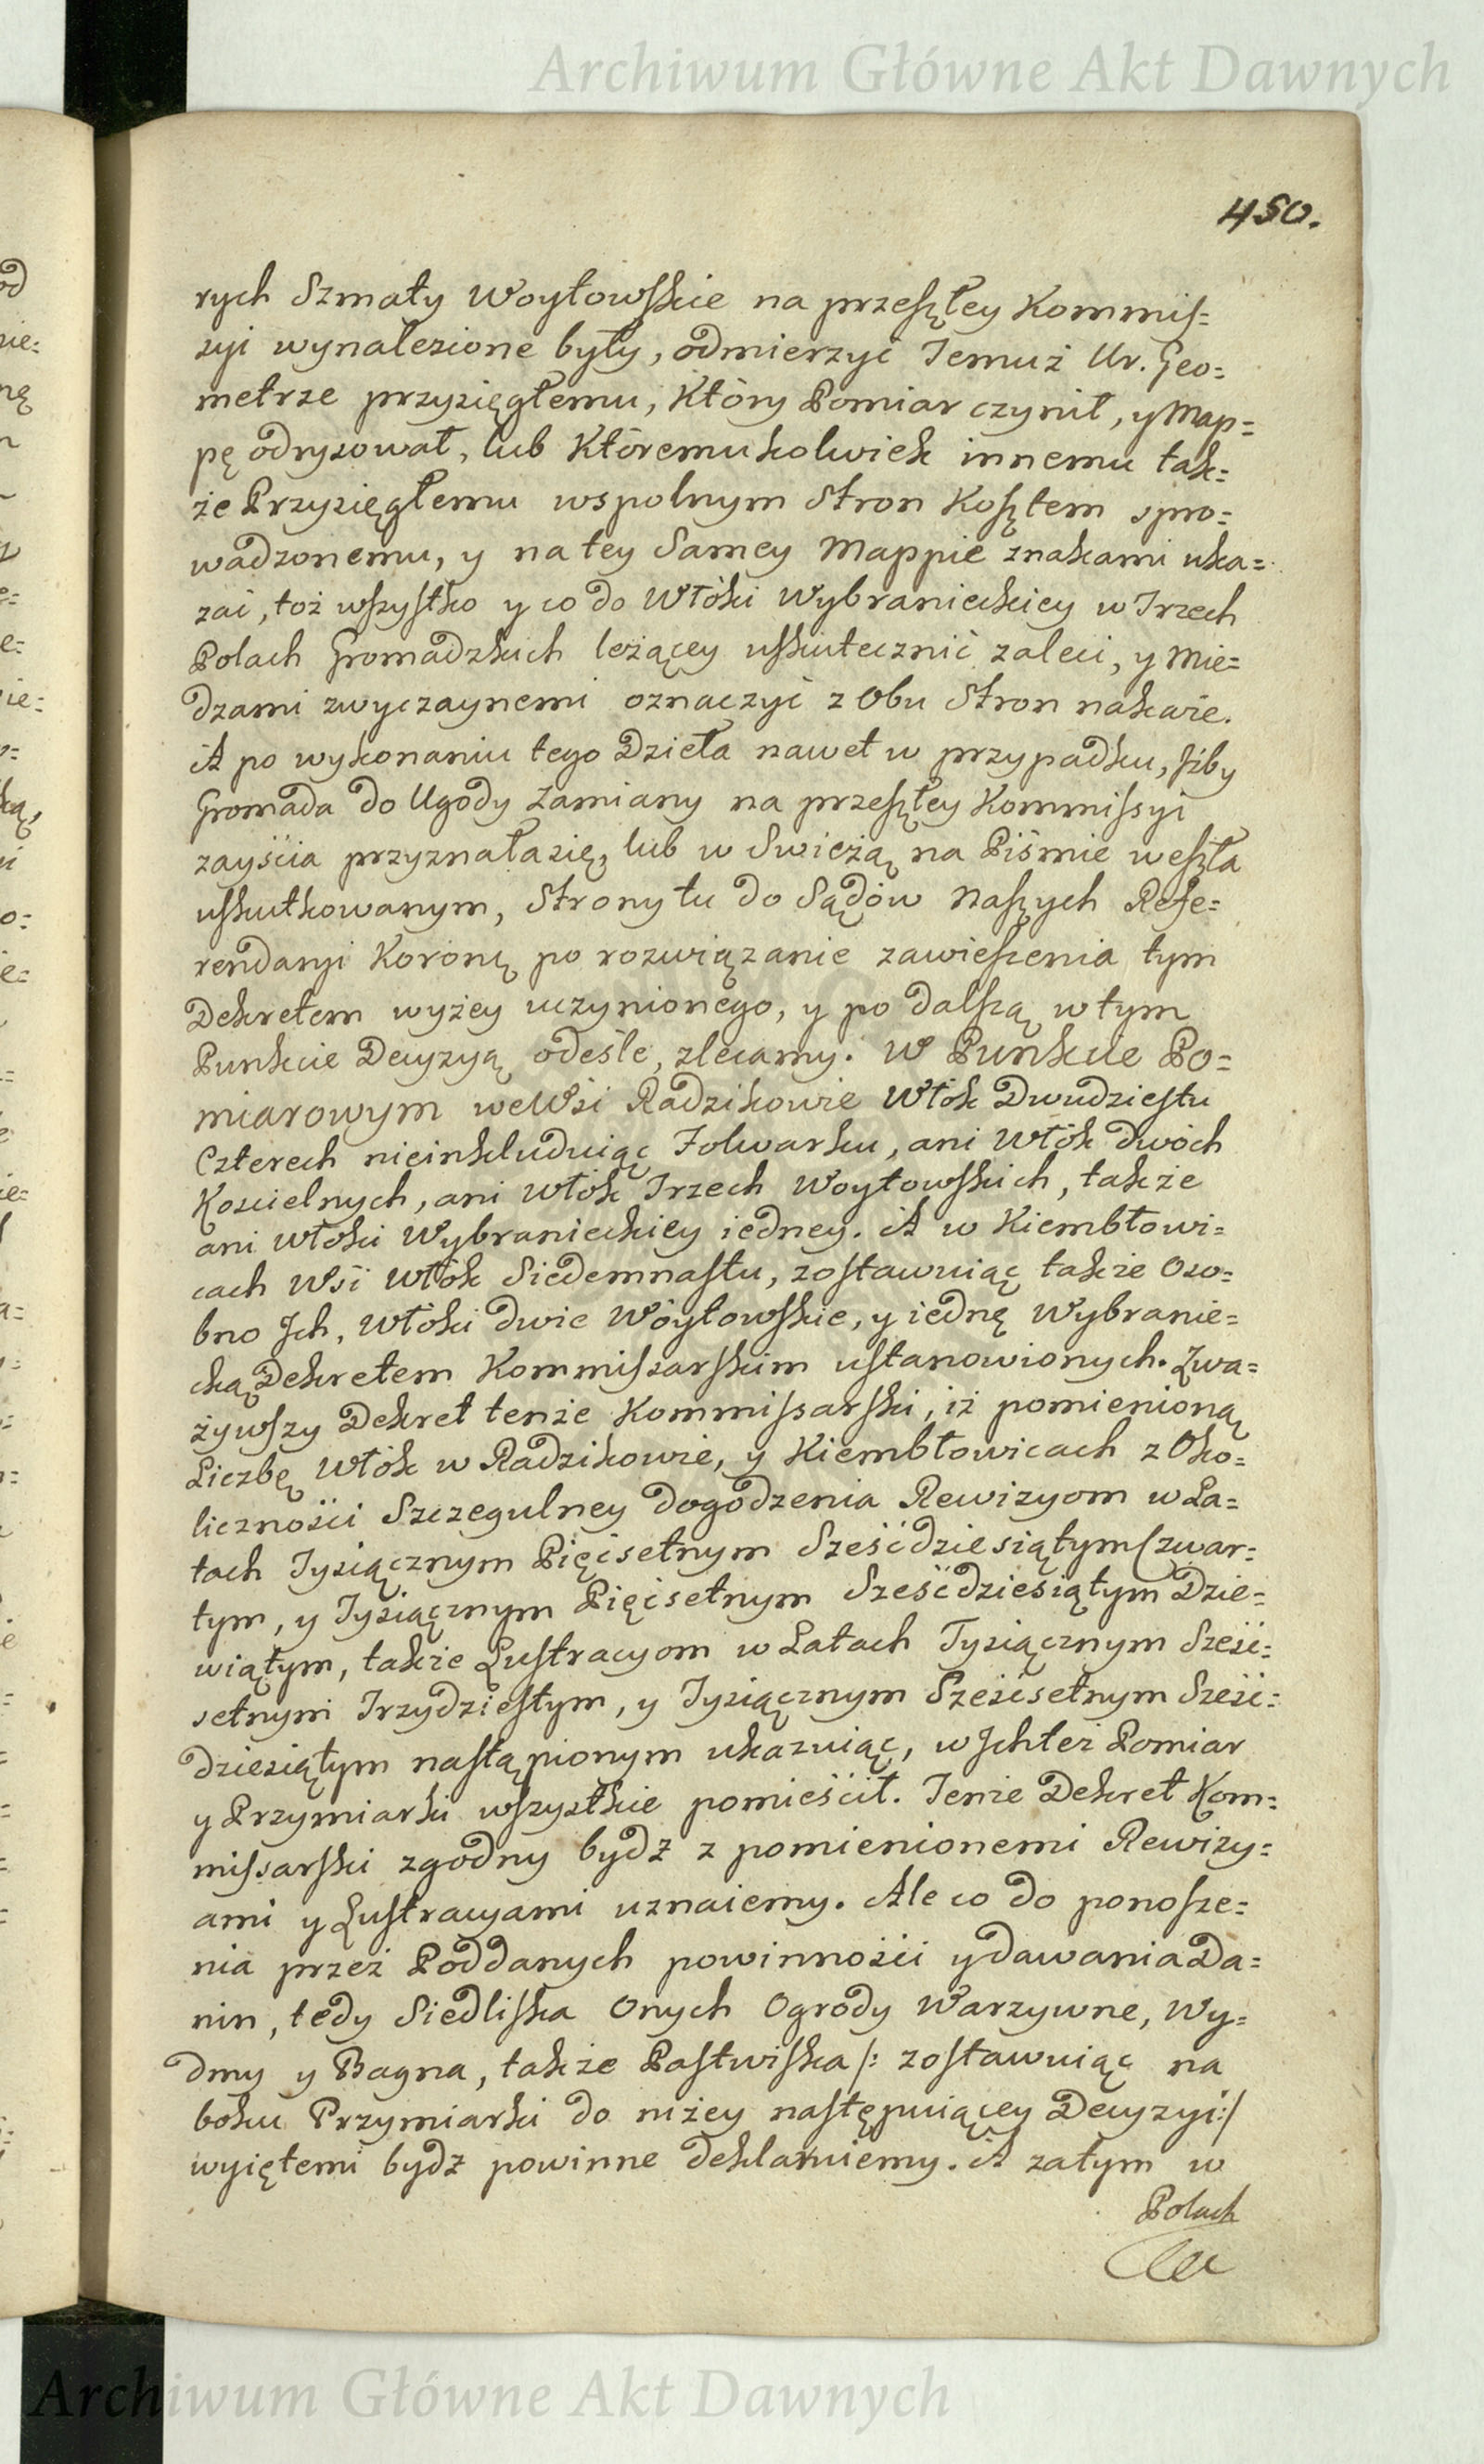 Archiwum Główne Akt Dawnych
450.
rych Szmaty Woytowskie na przeszłey Kommis=
syi wynalezione były, odmierzyć Temuż Ur. Geo=
metrze przysięgłemu, Który Pomiar czynił, y Map=
pę odrysował, lub Któremukolwiek innemu tak=
że Przysięgłemu wspolnym Stron Kosztem spro=
wadzonemu, y na tey Samey Mappie znakami uka=
zać, toż wszystko y co do Włóki Wybranieckiey w Trzech
Polach Gromadzkich leżącey uskutecznić zaleci, y Mie=
dzami zwyczaynemi oznaczyć z Obu Stron nakaże.
A po wykonaniu tego Dzieła nawet w przypadku, jśby
Gromada do Ugody Zamiany na przeszłey Kommissyi
zayścia przyznała się, lub w Swieżą na Piśmie weszła
uskutkowanym, Strony tu do Sądów Naszych Refe=
rendaryi Koronę po rozwiązanie zawieszenia tym
Dekretem wyżey uczynionego, y po dalszą w tym
Punkcie Decyzyą odeśle, zlecamy. W Punkcie Po=
miarowym we Wsi Radzikowie Włók Dwudziestu
Czterech nieinkluduiąc Folwarku, ani Włók dwóch
Koscielnych, ani Włók Trzech Woytowskich, także
ani Włoki Wybranieckiey iedney. A w Kiembłowi=
cach Wsi Włók Siedemnastu, zostawuiąc także Oso=
bno Ich, Włóki dwie Wóytowskie, y iednę Wybranie=
cką Dekretem Kommissarskim ustanowionych. Zwa=
żywszy Dekret tenże Kommissarski, iż pomienioną
Liczbę Włók w Radzikowie, y Kiembłowicach z Oko=
liczności Szczegulney dogodzenia Rewizyom w La=
tach Tysiącznym Pięćsetnym Sześćdziesiątym Czwar=
tym, y Tysiącznym Pięćsetnym Sześćdziesiątym Dzie=
wiątym, także Lustracyom w Latach Tysiącznym Sześć=
setnym Trzydziestym, y Tysiącznym Sześćsetnym Sześć=
dziesiątym nastąpionym ukazuiąc, w Ichżeż Pomiar
y Przymiarki wszystkie pomieścił. Tenże Dekret Kom=
missarski zgodny bydź z pomienionemi Rewizy=
ami y Lustracyami uznaiemy. Ale co do ponosze=
nia przez Poddanych powinności y dawania Da=
nin, tedy Siedliska Onych Ogrody Warzywne, Wy=
dmy y Bagna, także Pastwiska /: zostawuiąc na
boku Przymiarki do niżey następuiącey Decyzyi :/
wyiętemi bydź powinne deklaruiemy. A zatym w
Polach
Archiwum Główne Akt Dawnych